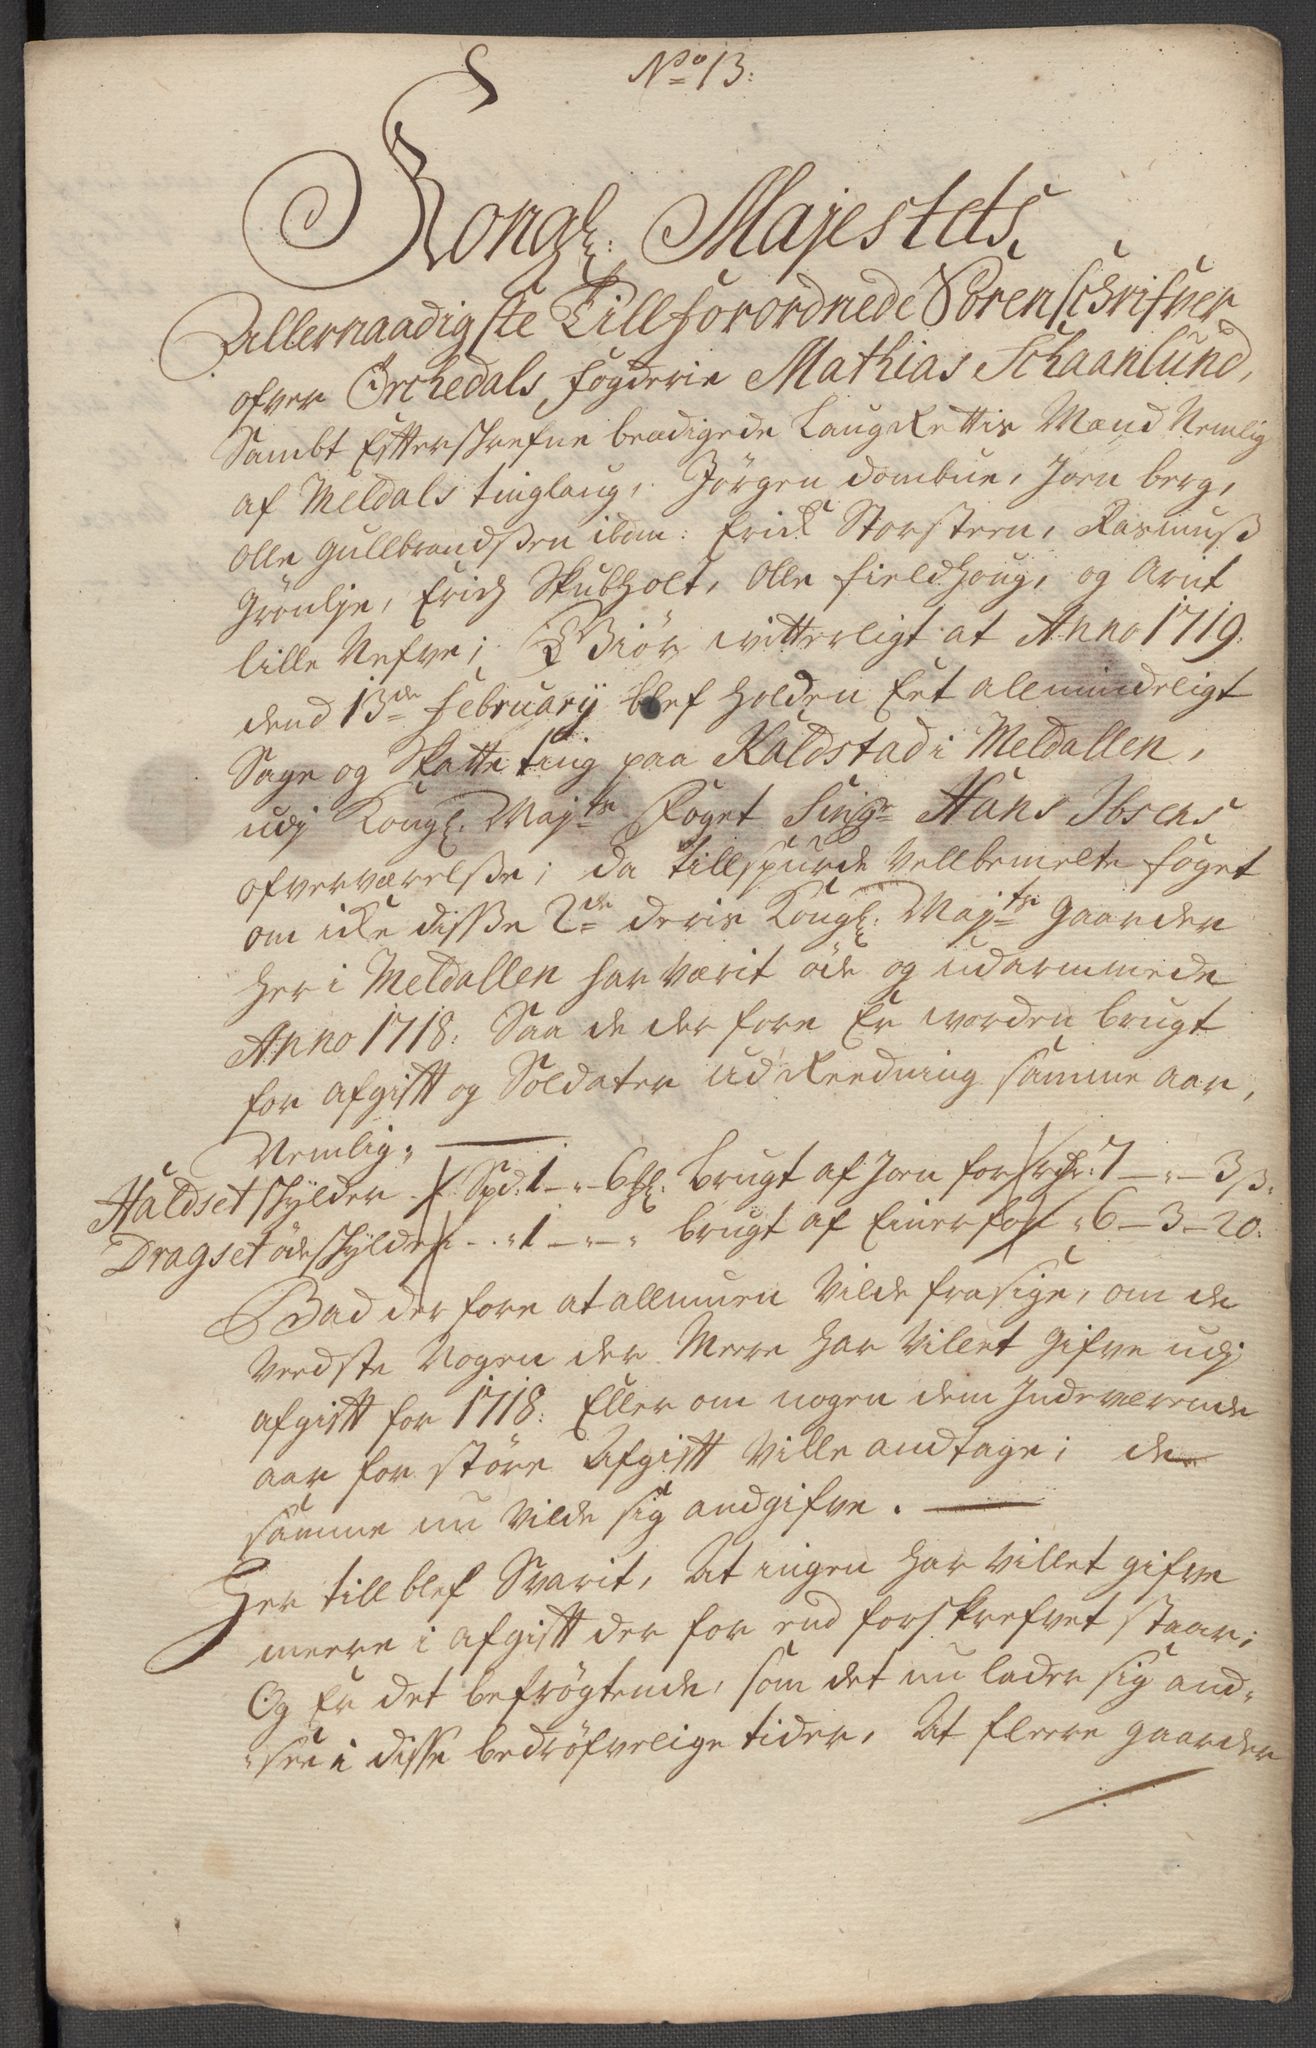 No 13:
Kongl: Majestets,
Allernaadigste Tillforordnede Sorenschrifver
ofver Örchedals fogderie Mathias Schaanlund,
Sambt Efterschrefne beædigede LaugRettis Mænd Nemlig
af Meldals tinglaug, Jörgen dombue, Joen berg,
Olle Gullbrandsßen ibm: Erich Storsteen, Rasmuß
Grönlje, Erich Skubholt, Olle fieldhoug, og Arnt
lille Refve; Giör witterligt at Anno 1719.
dend 13de February blef holden Eet allmindeligt
Sage og Skatte ting paa Kaldstad i Meldallen,
udj Kongl: Majts Foget Singr Hans Ibsens
ofverværelße; da tillspurde Vellbemelte foget
om iche diße 2de deris Kongl: Majts Gaarder
her i Meldallen har værit öde og udarmmede
Anno 1718: Saa de der fore Er worden brugt
for afgift og Soldater udReedning samme aar,
Nemlig: —
Haldset skylder - Spd: 1 - " - 6 hl: brugt af Joen for rdr: 7 - " - 3 ß:
Dragset ödeskylder - - " 1 - " - " brugt af Einer for " 6 - 3 - 20:
Bad der fore at allmuen Vilde frasige, om de
Veedste Nogen der Meere har Villet gifve udj
afgift for 1718: Eller om nogen dem Indeverende
aar for störe Afgift Ville andtage; de
samme nu Vilde sig andgifve. —
Her till blef Svarit, At ingen har Villet gifve
meere i afgift der for end forskrefvet staar;
Og Er det befrögtende, som det nu lader sig and-
see i diße bedröfvelige tider, At fleere gaarder